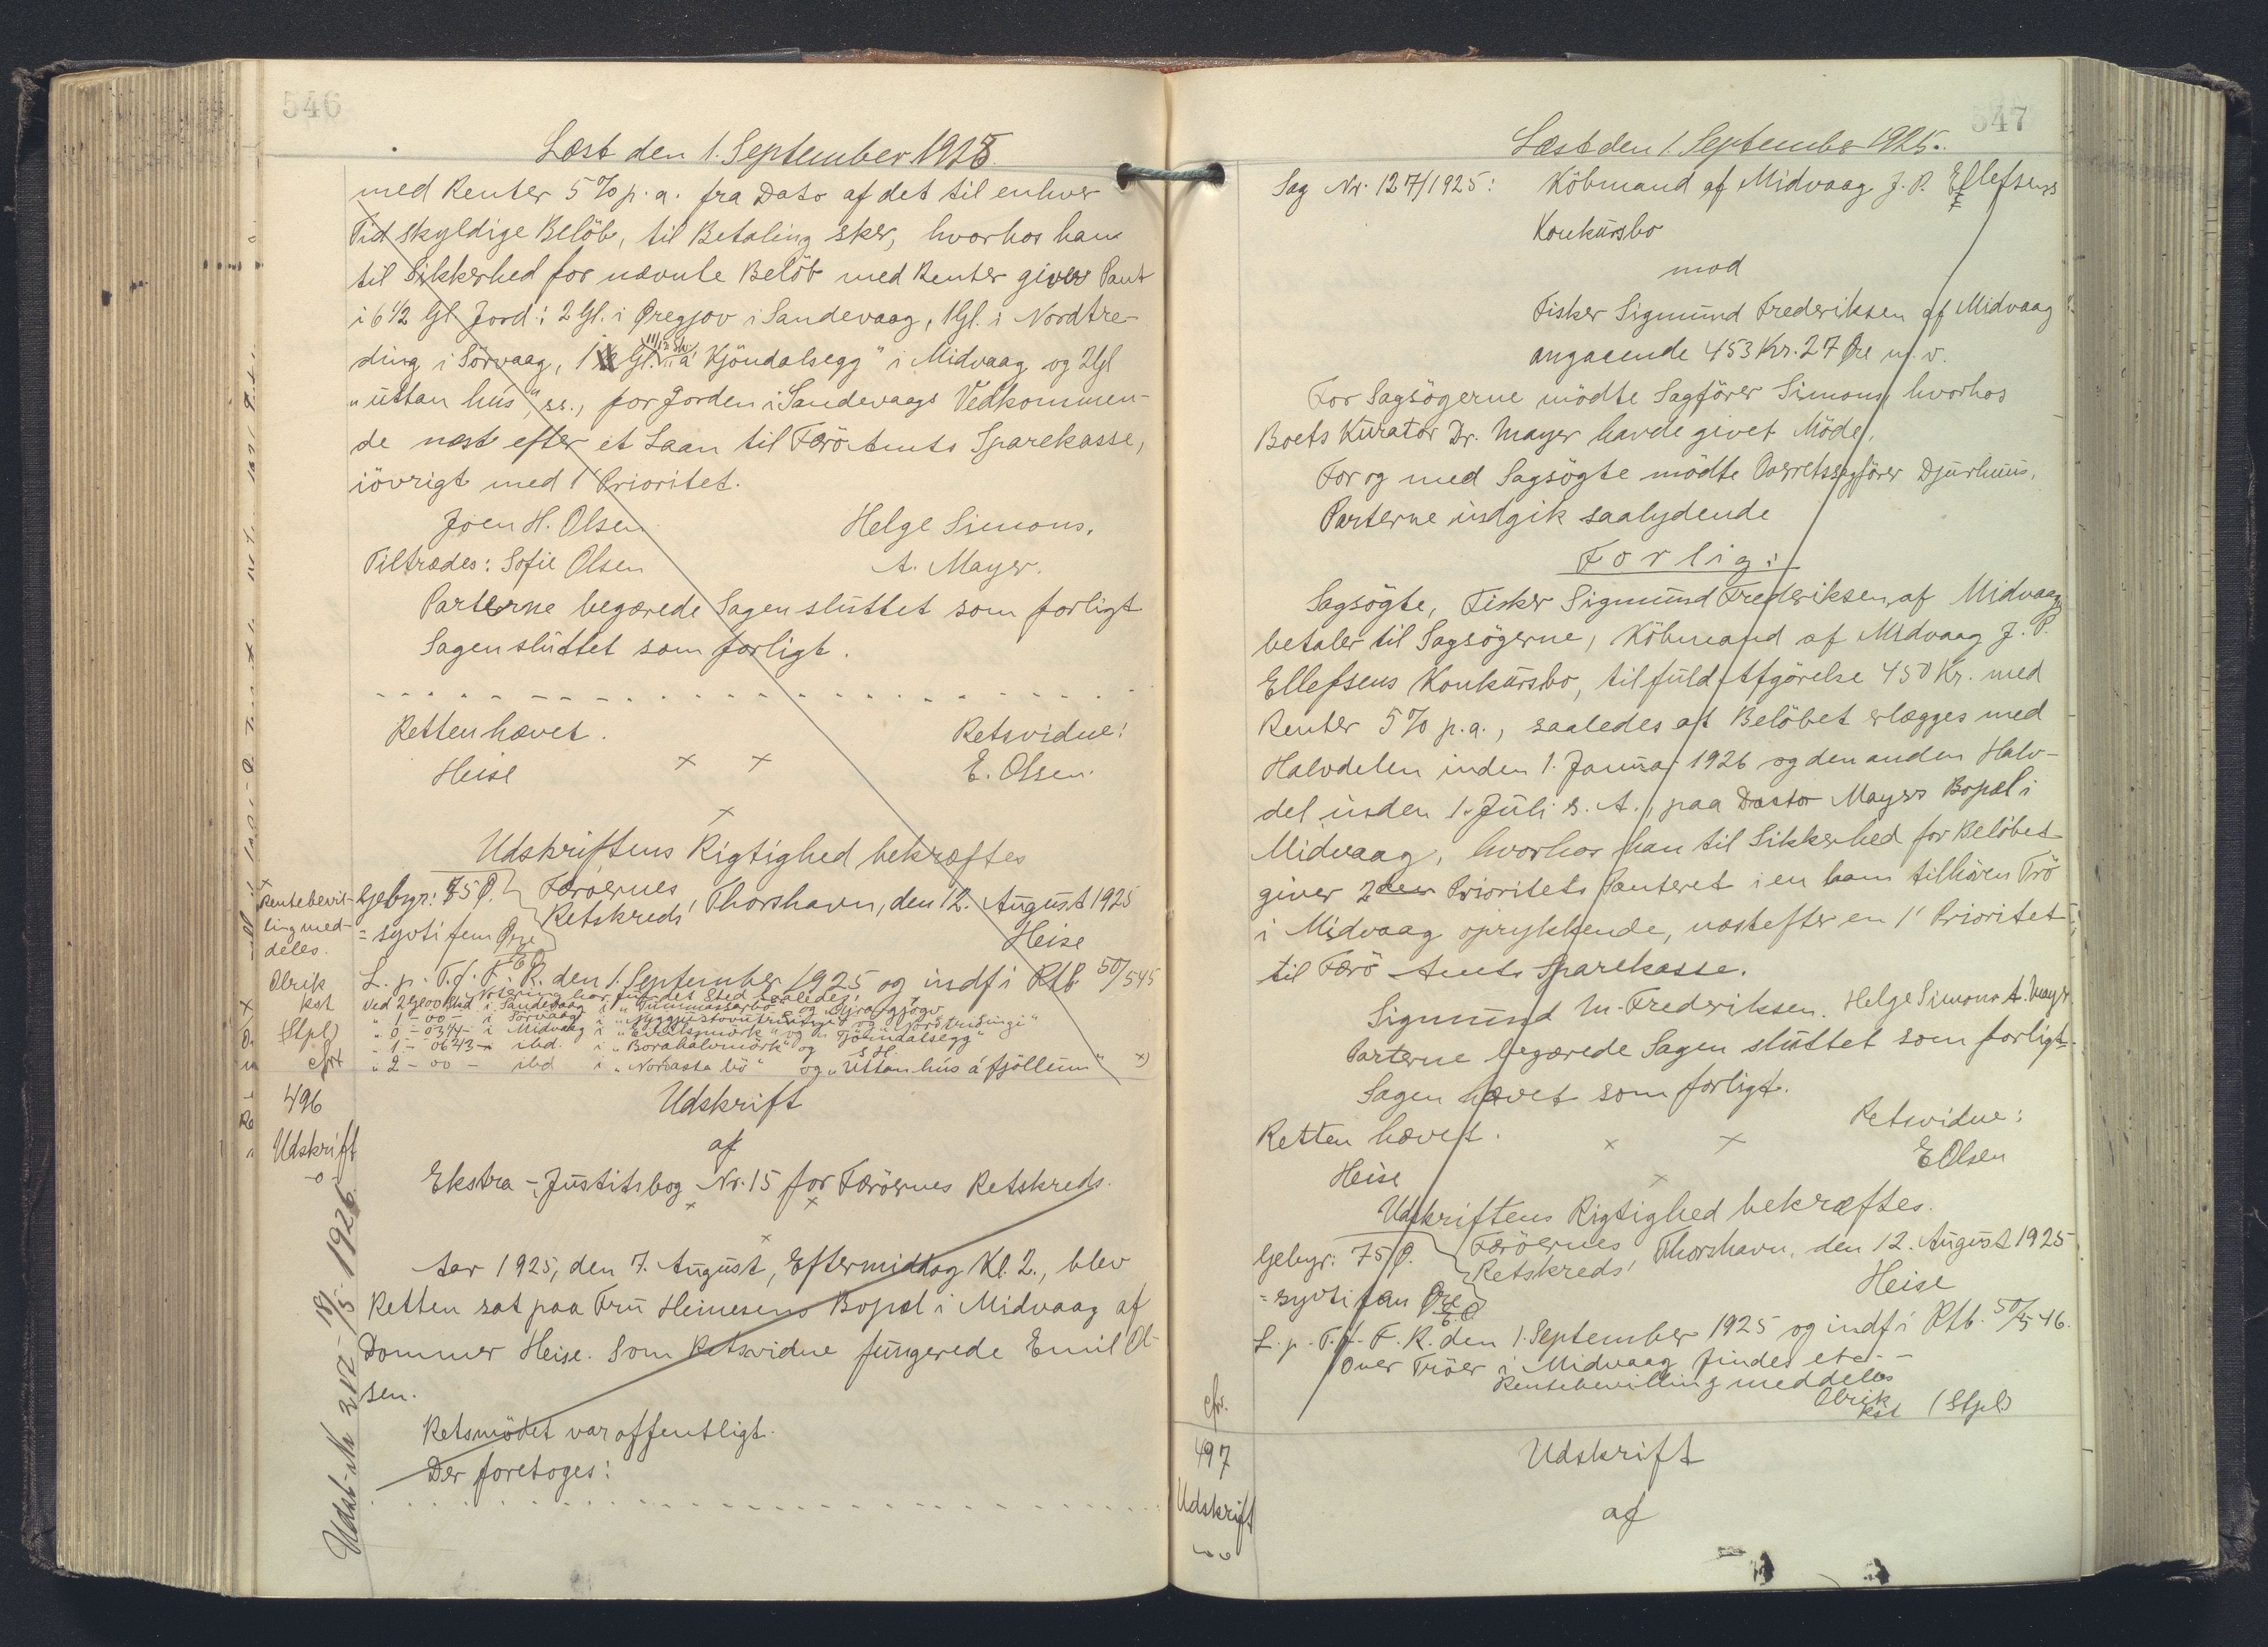 546
Læst den 1. September 1925.
med Renter 5 % p. a. fra Dato af det til enhver
Tid skyldige Belöb, til Betaling sker, hvorhos han
til Sikkerhed for nævnte Belöb med Renter giver Pant
i 6 1/2 Gl. Jord: 2 Gl. i Øregjov i Sandevaag, 1 Gl. i Nordtre-
ding i Sörvaag, 1 Gl. "á Kjöndalsegg" i Midvaag og 2 Gl
"uttan hús", ss., for Jorden i Sandevaags Vedkommen-
de næst efter et Laan til Færö Amts Sparekasse,
iövrigt med 1' Prioritet.
Joen H. Olsen Helge Simons.
Tiltrædes: Sofie Olsen A. Mayer.
Parterne begærede Sagen sluttet som forligt
Sagen sluttet som forligt.
Retten hævet. Retsvidne:
Heise E. Olsen.
Udskriftens Rigtighed bekræftes
Rentebevil-
ling med-
deles.
Olrik
kst
(Stpl)
cfr
Gebyr: 75 Ø. Færöernes Retskreds', Thorshavn, den 12. August 1925
= syvti fem Øre Heise
E O
L. p. T. f. F. R. den 1. September 1925 og indf i Rtb. 50/545
Notering har fundet Sted saaledes:
Ved 2 Gl 00 Skd i Sandevaag i
" 1 - 00 - " Sörvaag i
" 0 - 03 1/4 - i Midvaag i
" 1 - 06 43 - ibd. i "Borahálvmörk" og
" 2 - 00 - ibd i "Norasta bö" og "Uttan hús á fjöllum" x)
496
Udskrift
Udskrift
af
Ekstra-Justitsbog Nr. 15 for Færöernes Retskreds.
Aar 1925, den 7. August, Eftermiddag Kl. 2., blev
Retten sat paa Fru Heinesens Bopæl i Midvaag af
Dommer Heise. Som Retsvidne fungerede Emil Ol-
sen.
Retsmödet var offentligt.
Der foretoges:
Udsl. 18/5 1926
547
Læst den 1. September 1925.
Sag Nr. 127/1925: Köbmand af Midvaag J. P. Ellefsens
Konkursbo
mod
Fisker Sigmund Frederiksen af Midvaag
angaaende 453 Kr. 27 Øre m. v.
For Sagsögerne mödte Sagförer Simons, hvorhos
Boets Kurator Dr. Mayer havde givet Möde.
For og med Sagsögte mödte Overretssagförer Djurhuus.
Parterne indgik saalydende
Forlig:
Sagsögte, Fisker Sigmund Frederiksen, af Midvaag
betaler til Sagsögerne, Köbmand af Midvaag J. P.
Ellefsens Konkursbo, til fuld Afgörelse 450 Kr. med
Renter 5 % p. a., saaledes at Belöbet erlægges med
Halvdelen inden 1. Januar 1926 og den anden Halv-
del inden 1. Juli s. A., paa Doctor Mayers Bopæl i
Midvaag, hvorhos han til Sikkerhed for Belöbet
giver 2den Prioritets Panteret i en ham tilhören Trö
i Midvaag oprykkende, næst efter en 1' Prioritet
til Færö Amts Sparekasse.
Sigmund M. Frederiksen. Helge Simons A. Mayer.
Parterne begærede Sagen sluttet som forligt.
Sagen hævet som forligt.
Retten hævet. Retsvidne:
Heise E Olsen
Udskriftens Rigtighed bekræftes.
Gebyr: 75 Ø. Færöernes Retskreds', Thorshavn, den 12. August 1925
= syvti fem Øre Heise
E. O
L. p. T. f. F. R. den 1. September 1925 og indf i Rtb. 50/546.
Over Tröer i Midvaag findes etc. - -
Rentebevilling meddeles
Olrik
kst (Stpl)
cfr.
497
Udskrift
Udskrift
af